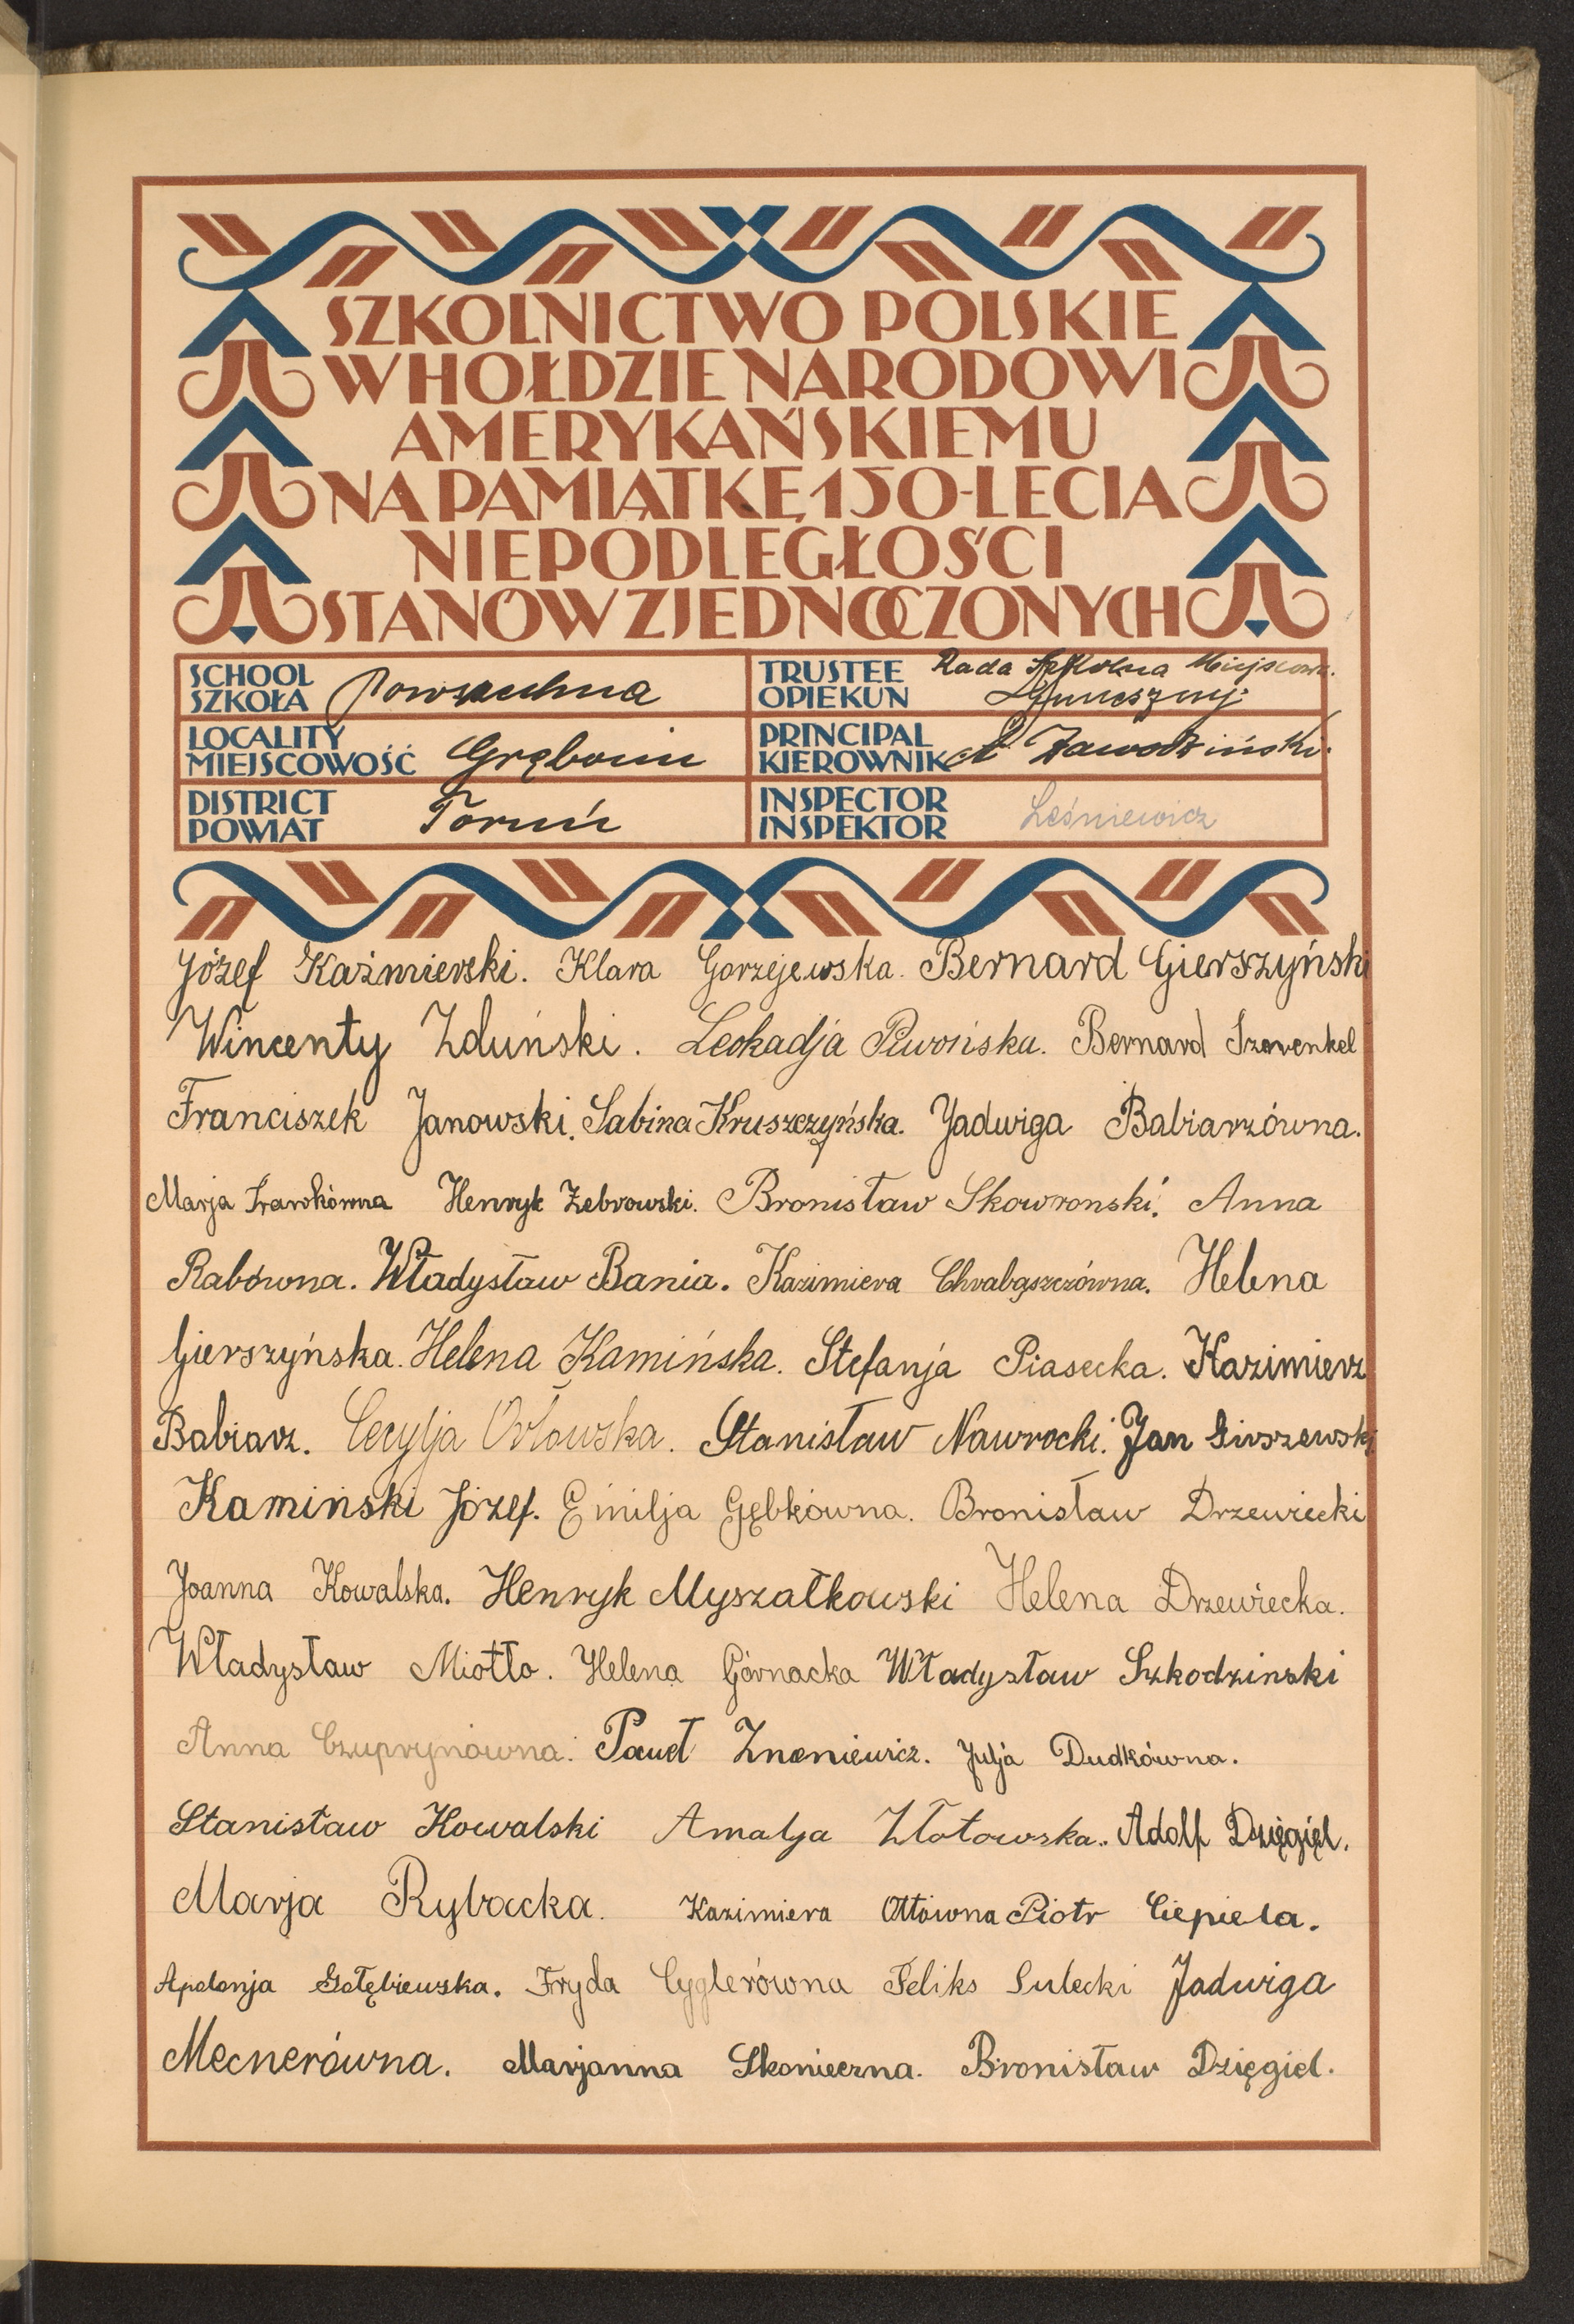 SZKOLNICTWO POLSKIE
W HOŁDZIE NARODOWI
AMERYKAŃSKIEMU
NA PAMIĄTKĘ 150-LECIA
NIEPODLEGŁOŚCI
STANÓW ZJEDNOCZONYCH
SCHOOL
SZKOŁA Powszechna
TRUSTEE Rada Szkolna Miejscowa.
OPIEKUN
LOCALITY
MIEJSCOWOŚĆ Grębocin
PRINCIPAL
KIEROWNIK A Zawodziński.
DISTRICT
POWIAT Toruń
INSPECTOR
INSPEKTOR Leśniewicz
Józef Kaźmierski. Klara Gorzejewska. Bernard Gierszyński
Wincenty Zduński. Leokadja Piwońska. Bernard
Franciszek Janowski. Sabina Kruszczyńska. Jadwiga Babiarzówna.
Marja Henryk Żebrowski. Bronisław Skowronski. Anna
Rabówna. Władysław Bania. Kazimiera Chrabąszczówna. Helena
Gierszyńska. Helena Kamińska. Stefanja Piasecka. Kazimierz
Babiarz. Cecylja Orłowska. Stanisław Nawrocki. Jan Girszewski
Kamiński Józef. Emilja Gębkówna. Bronisław Drzewiecki
Joanna Kowalska. Henryk Myszałkowski Helena Drzewiecka.
Władysław Miotło. Helena Górnacka Władysław Szkodzinski
Anna Czuprynówna. Paweł Znaniewicz. Julja Dudkówna.
Stanisław Kowalski Amalja Złotowska. Adolf Dzięgiel.
Marja Rybacka. Kazimiera Ottówna Piotr Ciepiela.
Apolonja Gołębiewska. Fryda Cyglerówna Feliks Sulecki Jadwiga
Mecnerówna. Marjanna Skonieczna. Bronisław Dzięgiel.